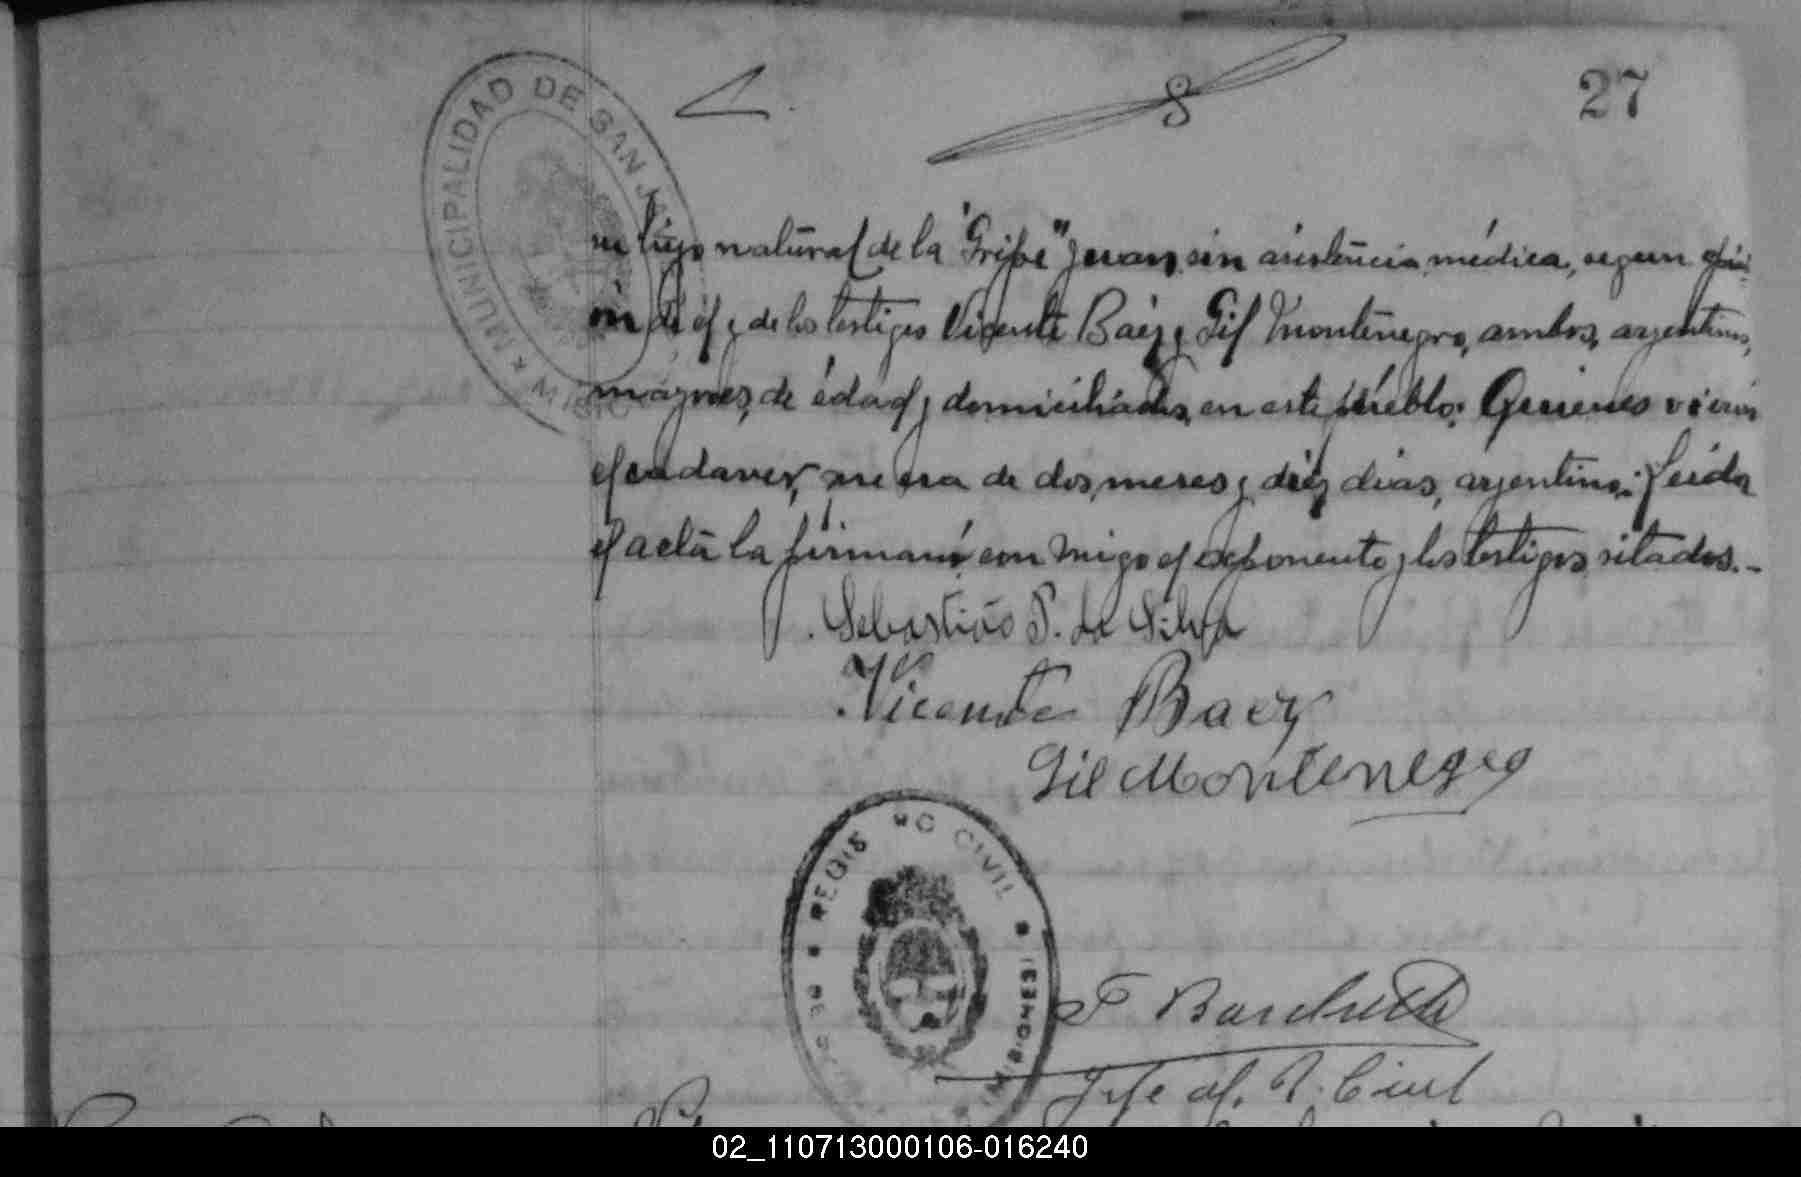 8
27
MUNICIPALIDAD DE SAN JA
su hijo natural de la "Gripe" Juan, sin asistencia médica, segun opin-
ión de él y de los testigos Vicente Baéz y Gil Montenegro, ambos, argentinos,
mayores, de édad y domiciliados, en este pueblo. Quienes vieron
el cadaver, que era de dos, meses y diéz dias, argentino. Leida
el acta la firman, con migo el exponente y los testigos, sitados.-
Sebastião P. da Silva
Vicente Baez
Gil Montenegro
REGISTRO CIVIL
MISIONES
F. Jefe del R. Civil
02_110713000106-016240